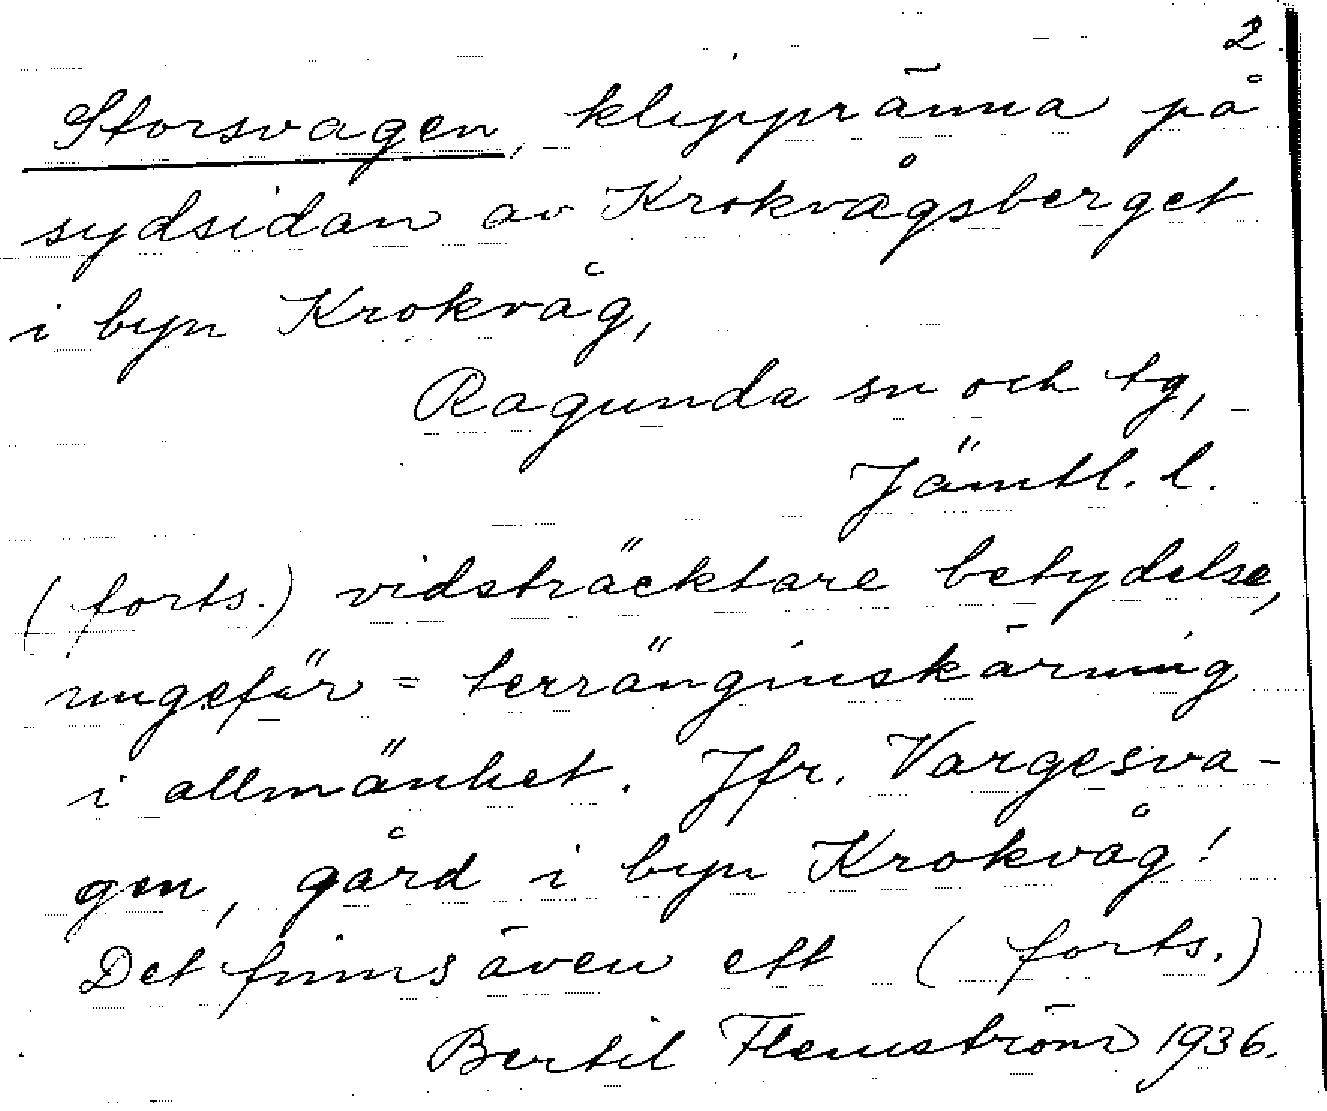 2.
Storsvagen, klippränna på
sydsidan av Krokvågsberget
i byn Krokvåg,
Ragunda sn och tg,
Jämtl. l.
(forts.) vidsträcktare betydelse,
ungefär = terränginskärning
i allmänhet. Jfr. Vargesva-
gen, gård i byn Krokvåg!
Det finns även ett (forts.)
Bertil Flemström 1936.